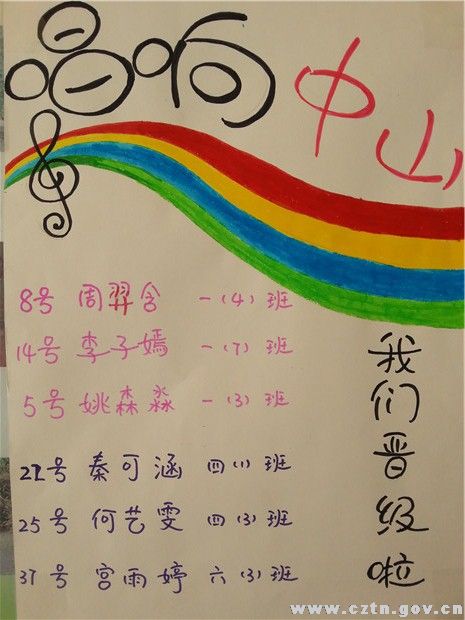 唱响中山
8号 周羿含 一(4)班
14号 李子嫣 一(7)班
5号 姚森淼 一(3)班
22号 秦可涵 四(1)班
25号 何艺雯 四(3)班
37号 宫雨婷 六(3)班
我们晋级啦
www.cztn.gov.cn